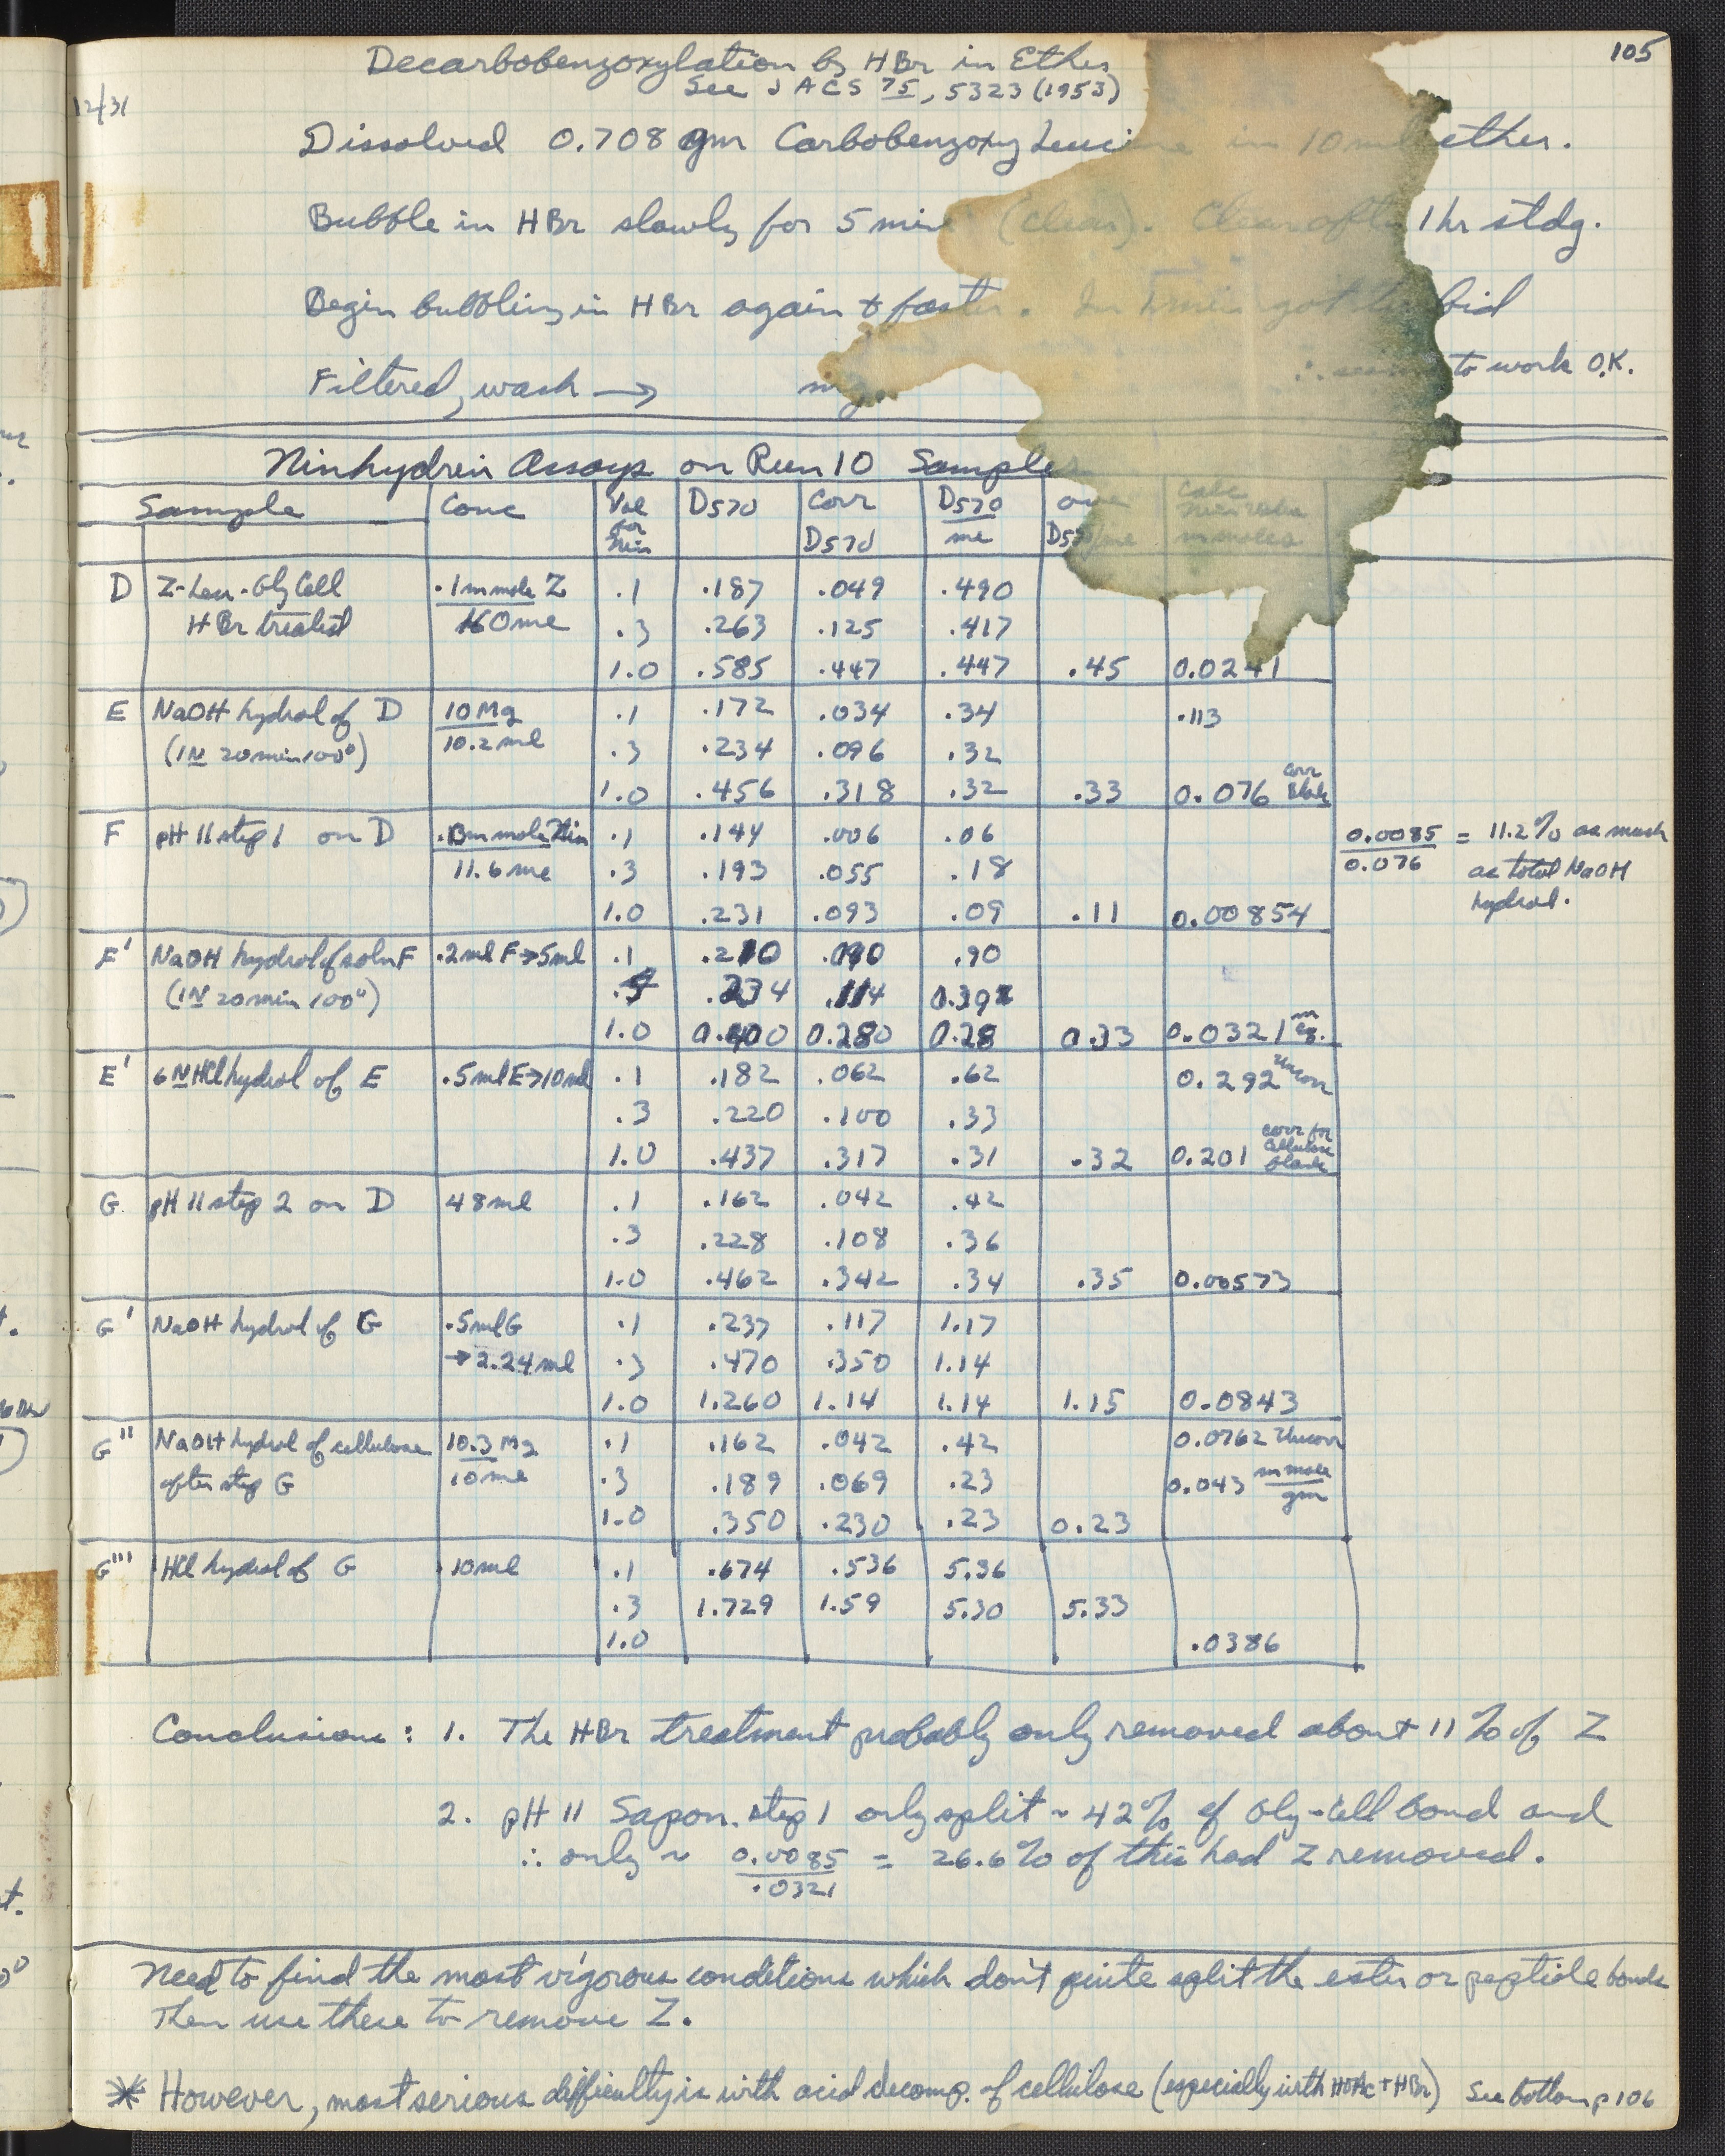 105
Decarbobenzoxylation by HBr in Ether
See JACS 75, 5323 (1953)
12/31
Dissolved 0.708 gm Carbobenzoxy Leucine in 10 ml ether.
Bubble in HBr slowly for 5 min (clear). Clear after 1 hr stdg.
Begin bubbling in HBr again & faster. In got turbid
Filtered, wash → mg. ∴ seems to work O.K.
Ninhydrin Assays on Run 10 Samples
Sample Conc Vol for Nin D570 Corr D570 D570/ml ave D570/ml Calc mmoles
D Z-Leu-Gly Cell .1 mmole Z .1 .187 .049 .490
HBr treated 160 ml .3 .263 .125 .417
1.0 .585 .447 .447 .45 0.0241
E NaOH hydrol of D 10 Mg .1 .172 .034 .34 .113
(1N 20 min 100°) 10.2 ml .3 .234 .096 .32
1.0 .456 .318 .32 .33 0.076 corr Blank
F pH 11 step 1 on D .1 .144 .006 .06 0.0085 = 11.2% as much
11.6 ml .3 .193 .055 .18 0.076 as total NaOH
1.0 .231 .093 .09 .11 0.00854 hydrol.
F' NaOH hydrol of soln F .2 ml F → 5 ml .1 .210 .090 .90
(1N 20 min 100°) .234 .114 0.39
1.0 0.400 0.280 0.28 0.33 0.0321 m eq.
E' 6N HCl hydrol of E .5 ml E → 10 ml .1 .182 .062 .62 0.292 Uncorr
.3 .220 .100 .33
1.0 .437 .317 .31 .32 0.201 corr for Cellulose blank
G pH 11 step 2 on D 48 ml .1 .162 .042 .42
.3 .228 .108 .36
1.0 .462 .342 .34 .35 0.00573
G' NaOH hydrol of G .5 ml G .1 .237 .117 1.17
→ 2.24 ml .3 .470 .350 1.14
1.0 1.260 1.14 1.14 1.15 0.0843
G'' NaOH hydrol of cellulose 10.3 Mg .1 .162 .042 .42 0.0762 Uncorr
after step G 10 ml .3 .189 .069 .23 0.043 m mole/gm
1.0 .350 .230 .23 0.23
G''' HCl hydrol of G 10 ml .1 .674 .536 5.36
.3 1.729 1.59 5.30 5.33
1.0 .0386
Conclusions: 1. The HBr treatment probably only removed about 11% of Z
2. pH 11 Sapon. step 1 only split ~ 42% of Gly-Cell bond and
∴ only ~ 0.0085/.0321 = 26.6% of this had Z removed.
Need to find the most vigorous conditions which don't quite split the ester or peptide bonds
Then use these to remove Z.
* However, most serious difficulty is with acid decomp. of cellulose (especially with HOAc + HBr) See bottom p 106